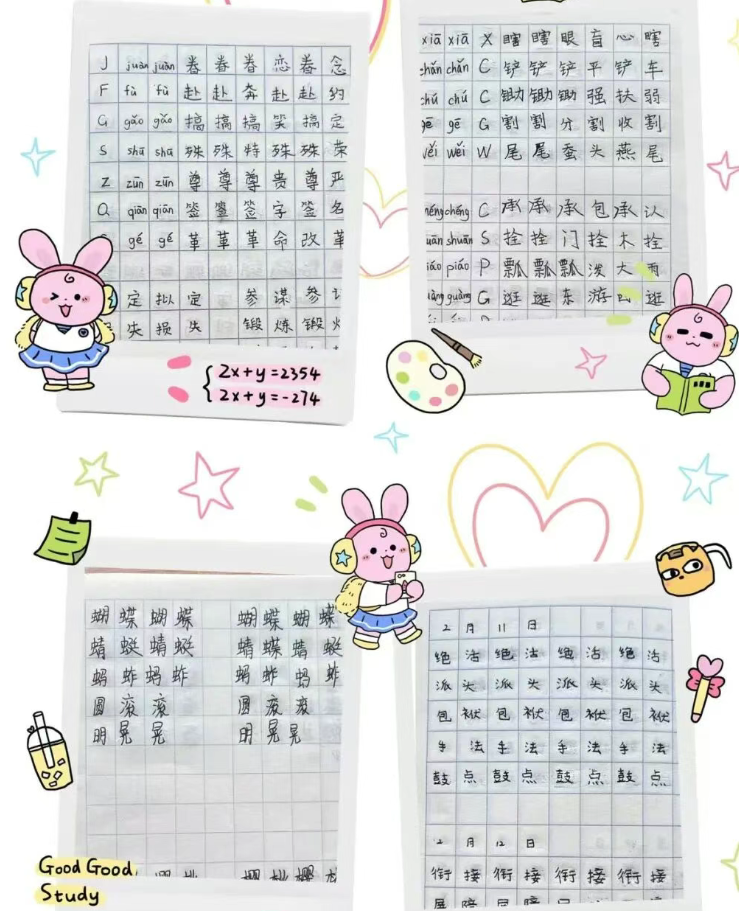 J juàn juàn 眷 眷 眷 恋 眷 念
F fù fù 赴 赴 奔 赴 赴 约
G gǎo gǎo 搞 搞 搞 笑 搞 定
S shū shū 殊 殊 特 殊 殊 荣
Z zūn zūn 尊 尊 尊 贵 尊 严
Q qiān qiān 签 签 签 字 签 名
gé gé 革 革 革 命 改 革
定 拟 定 参 谋 参
失 损 失 锻 炼 锻
2x+y=2354
2x+y=-274
xiā xiā X 瞎 瞎 眼 盲 心 瞎
chǎn chǎn C 铲 铲 铲 平 铲 车
chú chú C 锄 锄 锄 强 扶 弱
gē gē G 割 割 分 割 收 割
wěi wěi W 尾 尾 蚕 头 燕 尾
chéng chéng C 承 承 承 包 承 认
shuān S 拴 拴 门 拴 木 拴
piáo P 瓢 瓢 瓢 泼 大 雨
guàng G 逛 逛 东 游 西 逛
蝴 蝶 蝴 蝶 蝴 蝶 蝴 蝶
蜻 蜓 蜻 蜓 蜻 蝶 蜻 蜓
蚂 蚱 蚂 蚱 蚂 蚱 蚂 蚱
圆 滚 滚 圆 滚 滚
明 晃 晃 明 晃 晃
Good Good
Study
2 月 11 日
绝 活 绝 活 绝 活 绝 活
派 头 派 头 派 头 派 头
包 袱 包 袱 包 袱 包 袱
手 法 手 法 手 法 手 法
鼓 点 鼓 点 鼓 点 鼓 点
2 月 12 日
衔 接 衔 接 衔 接 衔 接